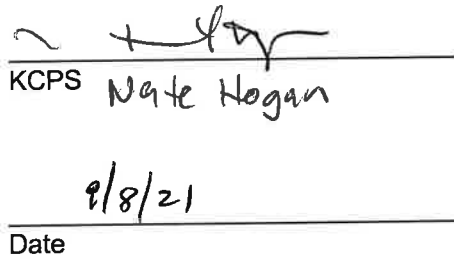 KCPS Nate Hogan
9/8/21
Date